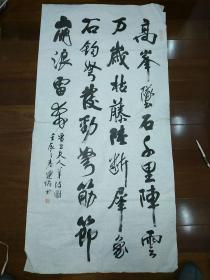 高峯墜石千里陣雲
万歲枯藤陸斷犀象
百鈞弩發勁弩筋節
崩浪雷奔
晉卫夫人筆陣圖
壬辰之春